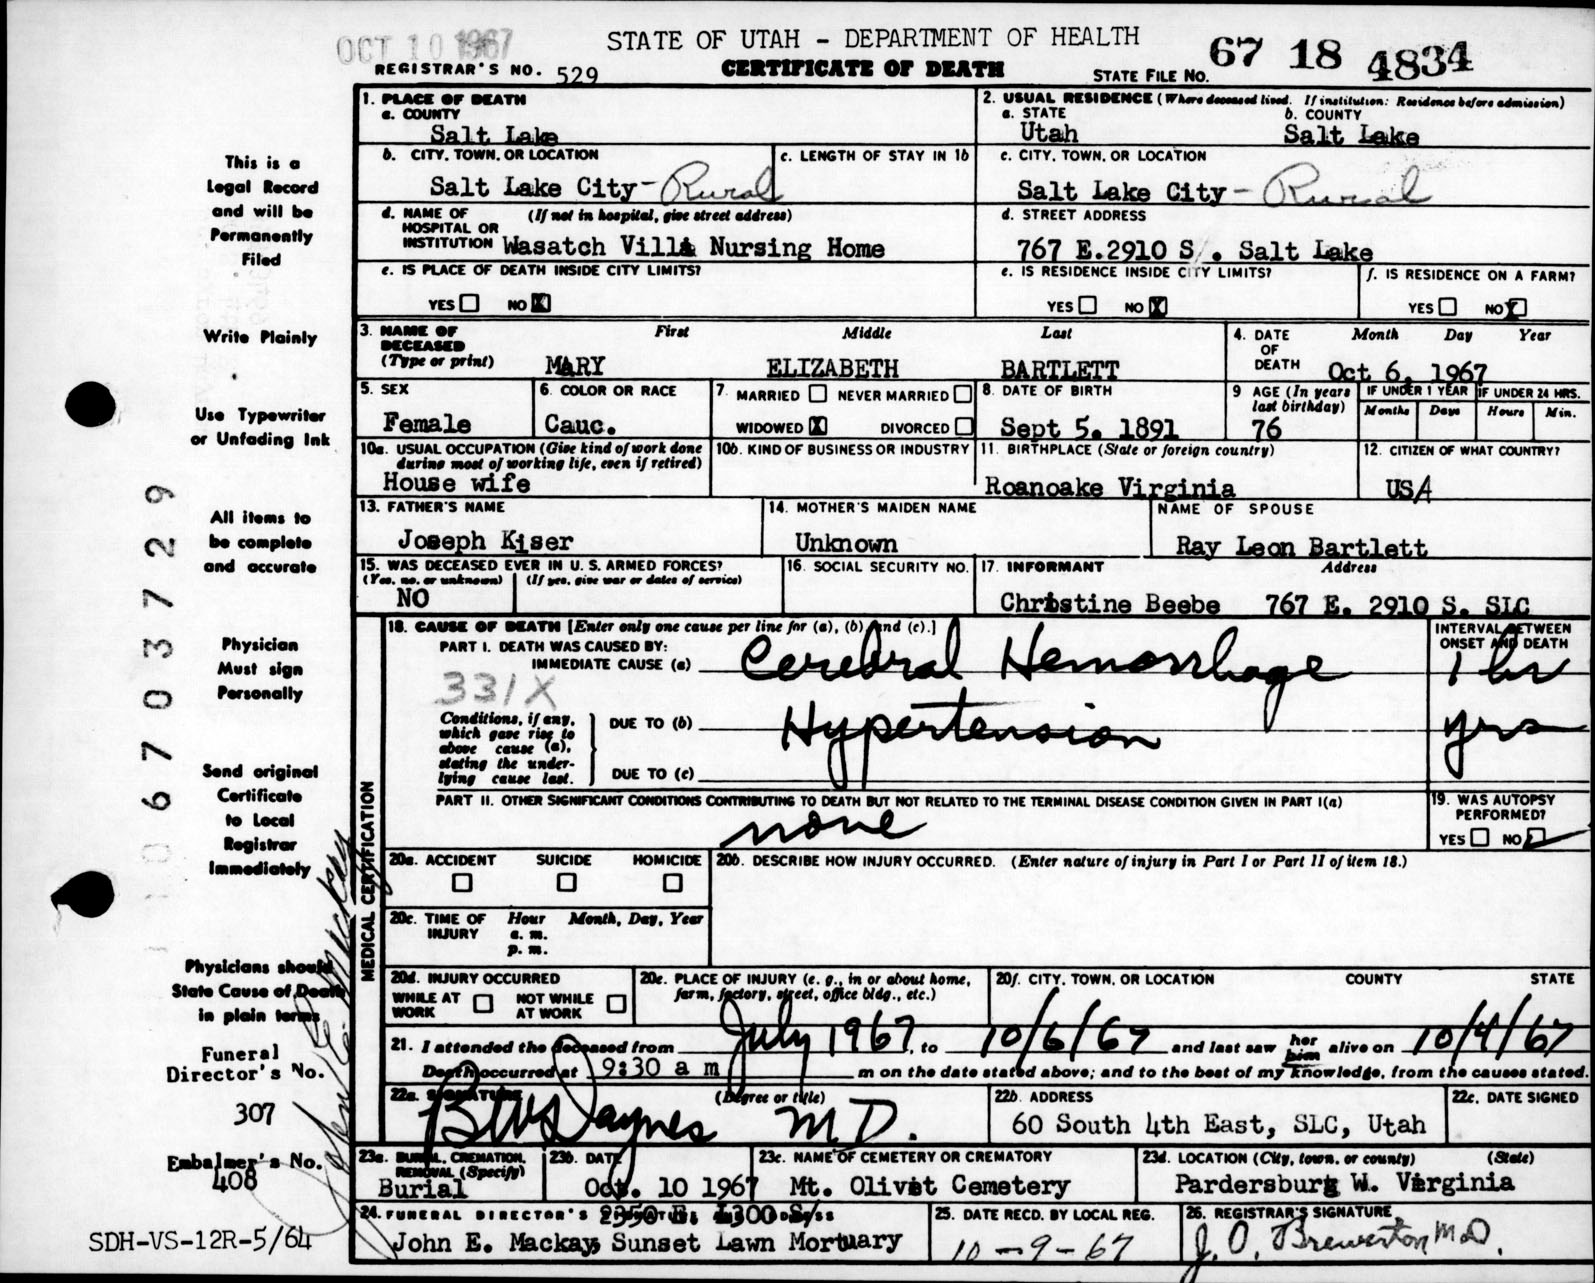 OCT 10 1967
STATE OF UTAH - DEPARTMENT OF HEALTH
CERTIFICATE OF DEATH
REGISTRAR'S NO. 529
STATE FILE NO. 67 18 4834
This is a
Legal Record
and will be
Permanently
Filed
Write Plainly
Use Typewriter
or Unfading Ink
All items to
be complete
and accurate
Physician
Must sign
Personally
Send original
Certificate
to Local
Registrar
Immediately
Physicians should
State Cause of Death
in plain terms
Funeral
Director's No.
307
Embalmer's No.
408
SDH-VS-12R-5/64
06703729
John E. Mackay
1. PLACE OF DEATH
a. COUNTY
Salt Lake
2. USUAL RESIDENCE (Where deceased lived. If institution: Residence before admission)
a. STATE b. COUNTY
Utah Salt Lake
b. CITY, TOWN, OR LOCATION c. LENGTH OF STAY IN 1b
Salt Lake City - Rural
c. CITY, TOWN, OR LOCATION
Salt Lake City - Rural
d. NAME OF HOSPITAL OR INSTITUTION (If not in hospital, give street address)
Wasatch Villa Nursing Home
d. STREET ADDRESS
767 E.2910 S . Salt Lake
e. IS PLACE OF DEATH INSIDE CITY LIMITS?
YES NO X
e. IS RESIDENCE INSIDE CITY LIMITS?
YES NO X
f. IS RESIDENCE ON A FARM?
YES NO X
3. NAME OF DECEASED (Type or print) First Middle Last
MARY ELIZABETH BARTLETT
4. DATE OF DEATH Month Day Year
Oct 6, 1967
5. SEX
Female
6. COLOR OR RACE
Cauc.
7. MARRIED NEVER MARRIED
WIDOWED X DIVORCED
8. DATE OF BIRTH
Sept 5. 1891
9 AGE (In years last birthday)
76
IF UNDER 1 YEAR IF UNDER 24 HRS.
Months Days Hours Min.
10a. USUAL OCCUPATION (Give kind of work done during most of working life, even if retired)
House wife
10b. KIND OF BUSINESS OR INDUSTRY
11. BIRTHPLACE (State or foreign country)
Roanoake Virginia
12. CITIZEN OF WHAT COUNTRY?
USA
13. FATHER'S NAME
Joseph Kiser
14. MOTHER'S MAIDEN NAME
Unknown
NAME OF SPOUSE
Ray Leon Bartlett
15. WAS DECEASED EVER IN U. S. ARMED FORCES?
(Yes, no, or unknown) (If yes, give war or dates of service)
NO
16. SOCIAL SECURITY NO.
17. INFORMANT Address
Christine Beebe 767 E. 2910 S. SLC
MEDICAL CERTIFICATION
18. CAUSE OF DEATH [Enter only one cause per line for (a), (b) and (c).]
INTERVAL BETWEEN ONSET AND DEATH
PART I. DEATH WAS CAUSED BY:
IMMEDIATE CAUSE (a) Cerebral Hemorrhage 1 hr
331X
Conditions, if any, which gave rise to above cause (a), stating the underlying cause last.
DUE TO (b) Hypertension yrs
DUE TO (c)
PART II. OTHER SIGNIFICANT CONDITIONS CONTRIBUTING TO DEATH BUT NOT RELATED TO THE TERMINAL DISEASE CONDITION GIVEN IN PART I(a)
none
19. WAS AUTOPSY PERFORMED?
YES NO
20a. ACCIDENT SUICIDE HOMICIDE
20b. DESCRIBE HOW INJURY OCCURRED. (Enter nature of injury in Part I or Part II of item 18.)
20c. TIME OF INJURY Hour Month, Day, Year
a. m.
p. m.
20d. INJURY OCCURRED
WHILE AT WORK NOT WHILE AT WORK
20e. PLACE OF INJURY (e. g., in or about home, farm, factory, street, office bldg., etc.)
20f. CITY, TOWN, OR LOCATION COUNTY STATE
21. I attended the deceased from July 1967, to 10/6/67 and last saw her him alive on 10/4/67
Death occurred at 9:30 a m m on the date stated above; and to the best of my knowledge, from the causes stated.
22a. SIGNATURE (Degree or title)
M D.
22b. ADDRESS
60 South 4th East, SLC, Utah
22c. DATE SIGNED
23a. BURIAL, CREMATION, REMOVAL (Specify)
Burial
23b. DATE
Oct. 10 1967
23c. NAME OF CEMETERY OR CREMATORY
Mt. Olivet Cemetery
23d. LOCATION (City, town, or county) (State)
Pardersburg W. Virginia
24. FUNERAL DIRECTOR'S
2350 E. 1300 S.
John E. Mackay, Sunset Lawn Mortuary
25. DATE RECD. BY LOCAL REG.
10-9-67
26. REGISTRAR'S SIGNATURE
J. O. Brewerton M D.